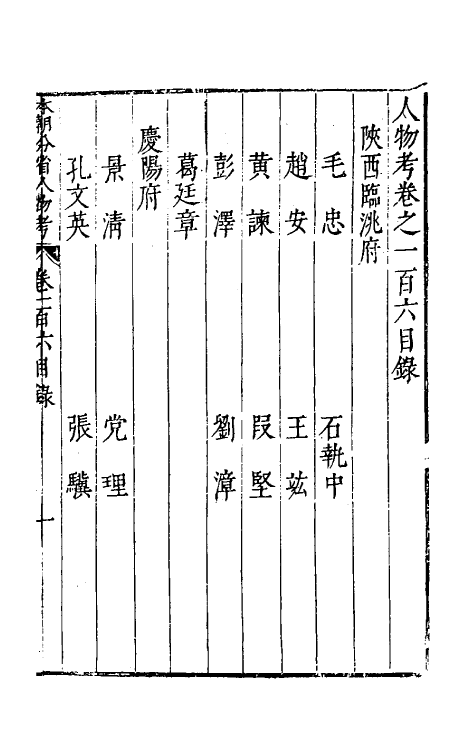 人物考卷之一百六目錄
陝西臨洮府
毛忠 石執中
趙安 王竑
黃諫 段堅
彭澤 劉漳
葛廷章
慶陽府
景淸 党理
孔文英 張驥
本朝分省人物考 卷一百六目錄 一